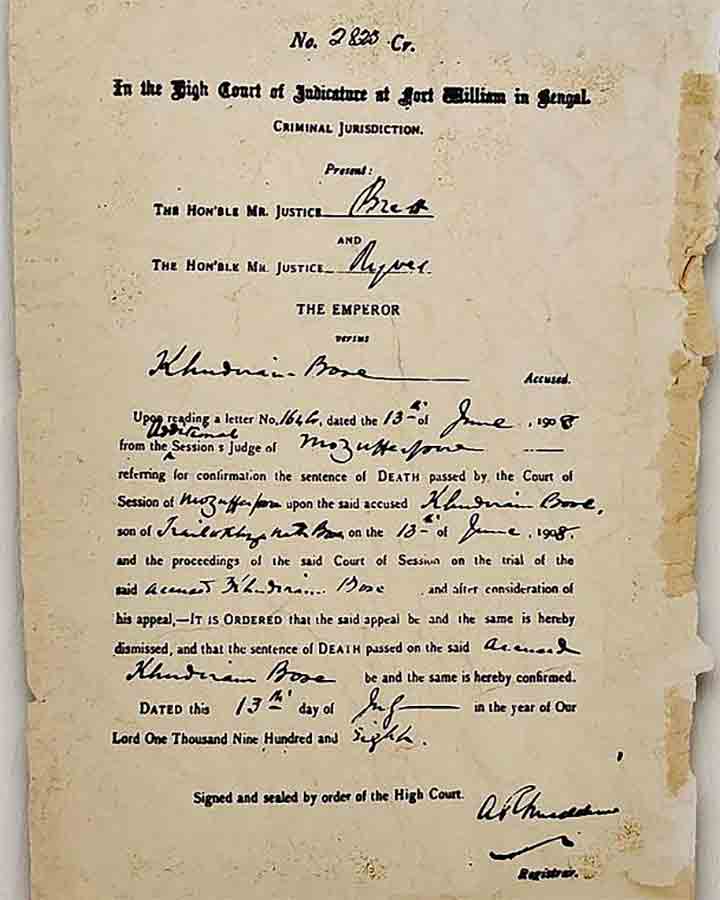 No. 2823 Cr.
In the High Court of Judicature at Fort William in Bengal.
CRIMINAL JURISDICTION.
Present:
THE HON'BLE MR. JUSTICE Brett
AND
THE HON'BLE MR. JUSTICE Ryves
THE EMPEROR
versus
Khudiram Bose Accused.
Upon reading a letter No. 1646, dated the 13th of June, 1908
Additional
from the Sessions Judge of Mozufferpore
referring for confirmation the sentence of DEATH passed by the Court of
Session of Mozufferpore upon the said accused Khudiram Bose,
son of Trailokhya Nath Bose on the 13th of June, 1908.
and the proceedings of the said Court of Session on the trial of the
said accused Khudiram Bose and after consideration of
his appeal,—IT IS ORDERED that the said appeal be and the same is hereby
dismissed, and that the sentence of DEATH passed on the said accused
Khudiram Bose be and the same is hereby confirmed.
DATED this 13th day of July in the year of Our
Lord One Thousand Nine Hundred and eight.
Signed and sealed by order of the High Court.
Registrar.